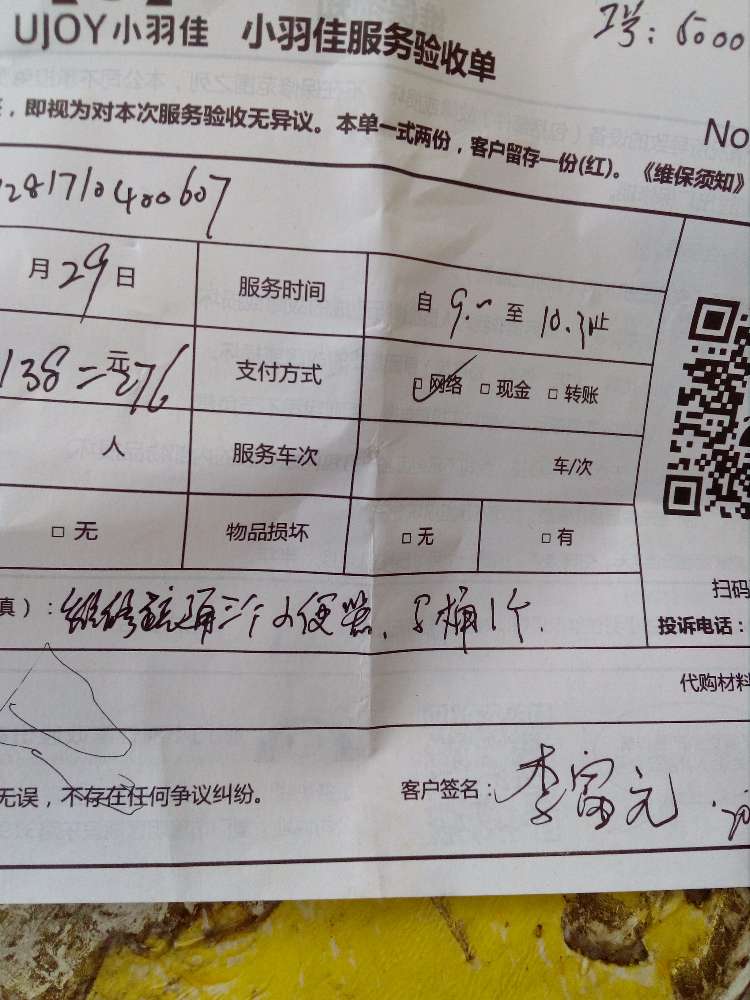 UJOY小羽佳 小羽佳服务验收单
工号：5000
，即视为对本次服务验收无异议。本单一式两份，客户留存一份(红)。《维保须知》
No
281710400607
月29日 服务时间 自 9. 至 10.3 止
138 元 276 支付方式 □网络 □现金 □转账
人 服务车次 车/次
□ 无 物品损坏 □无 □有
扫码
真）：维修疏通三个小便器、马桶1个.
投诉电话：
代购材料
无误，不存在任何争议纠纷。 客户签名：李富元